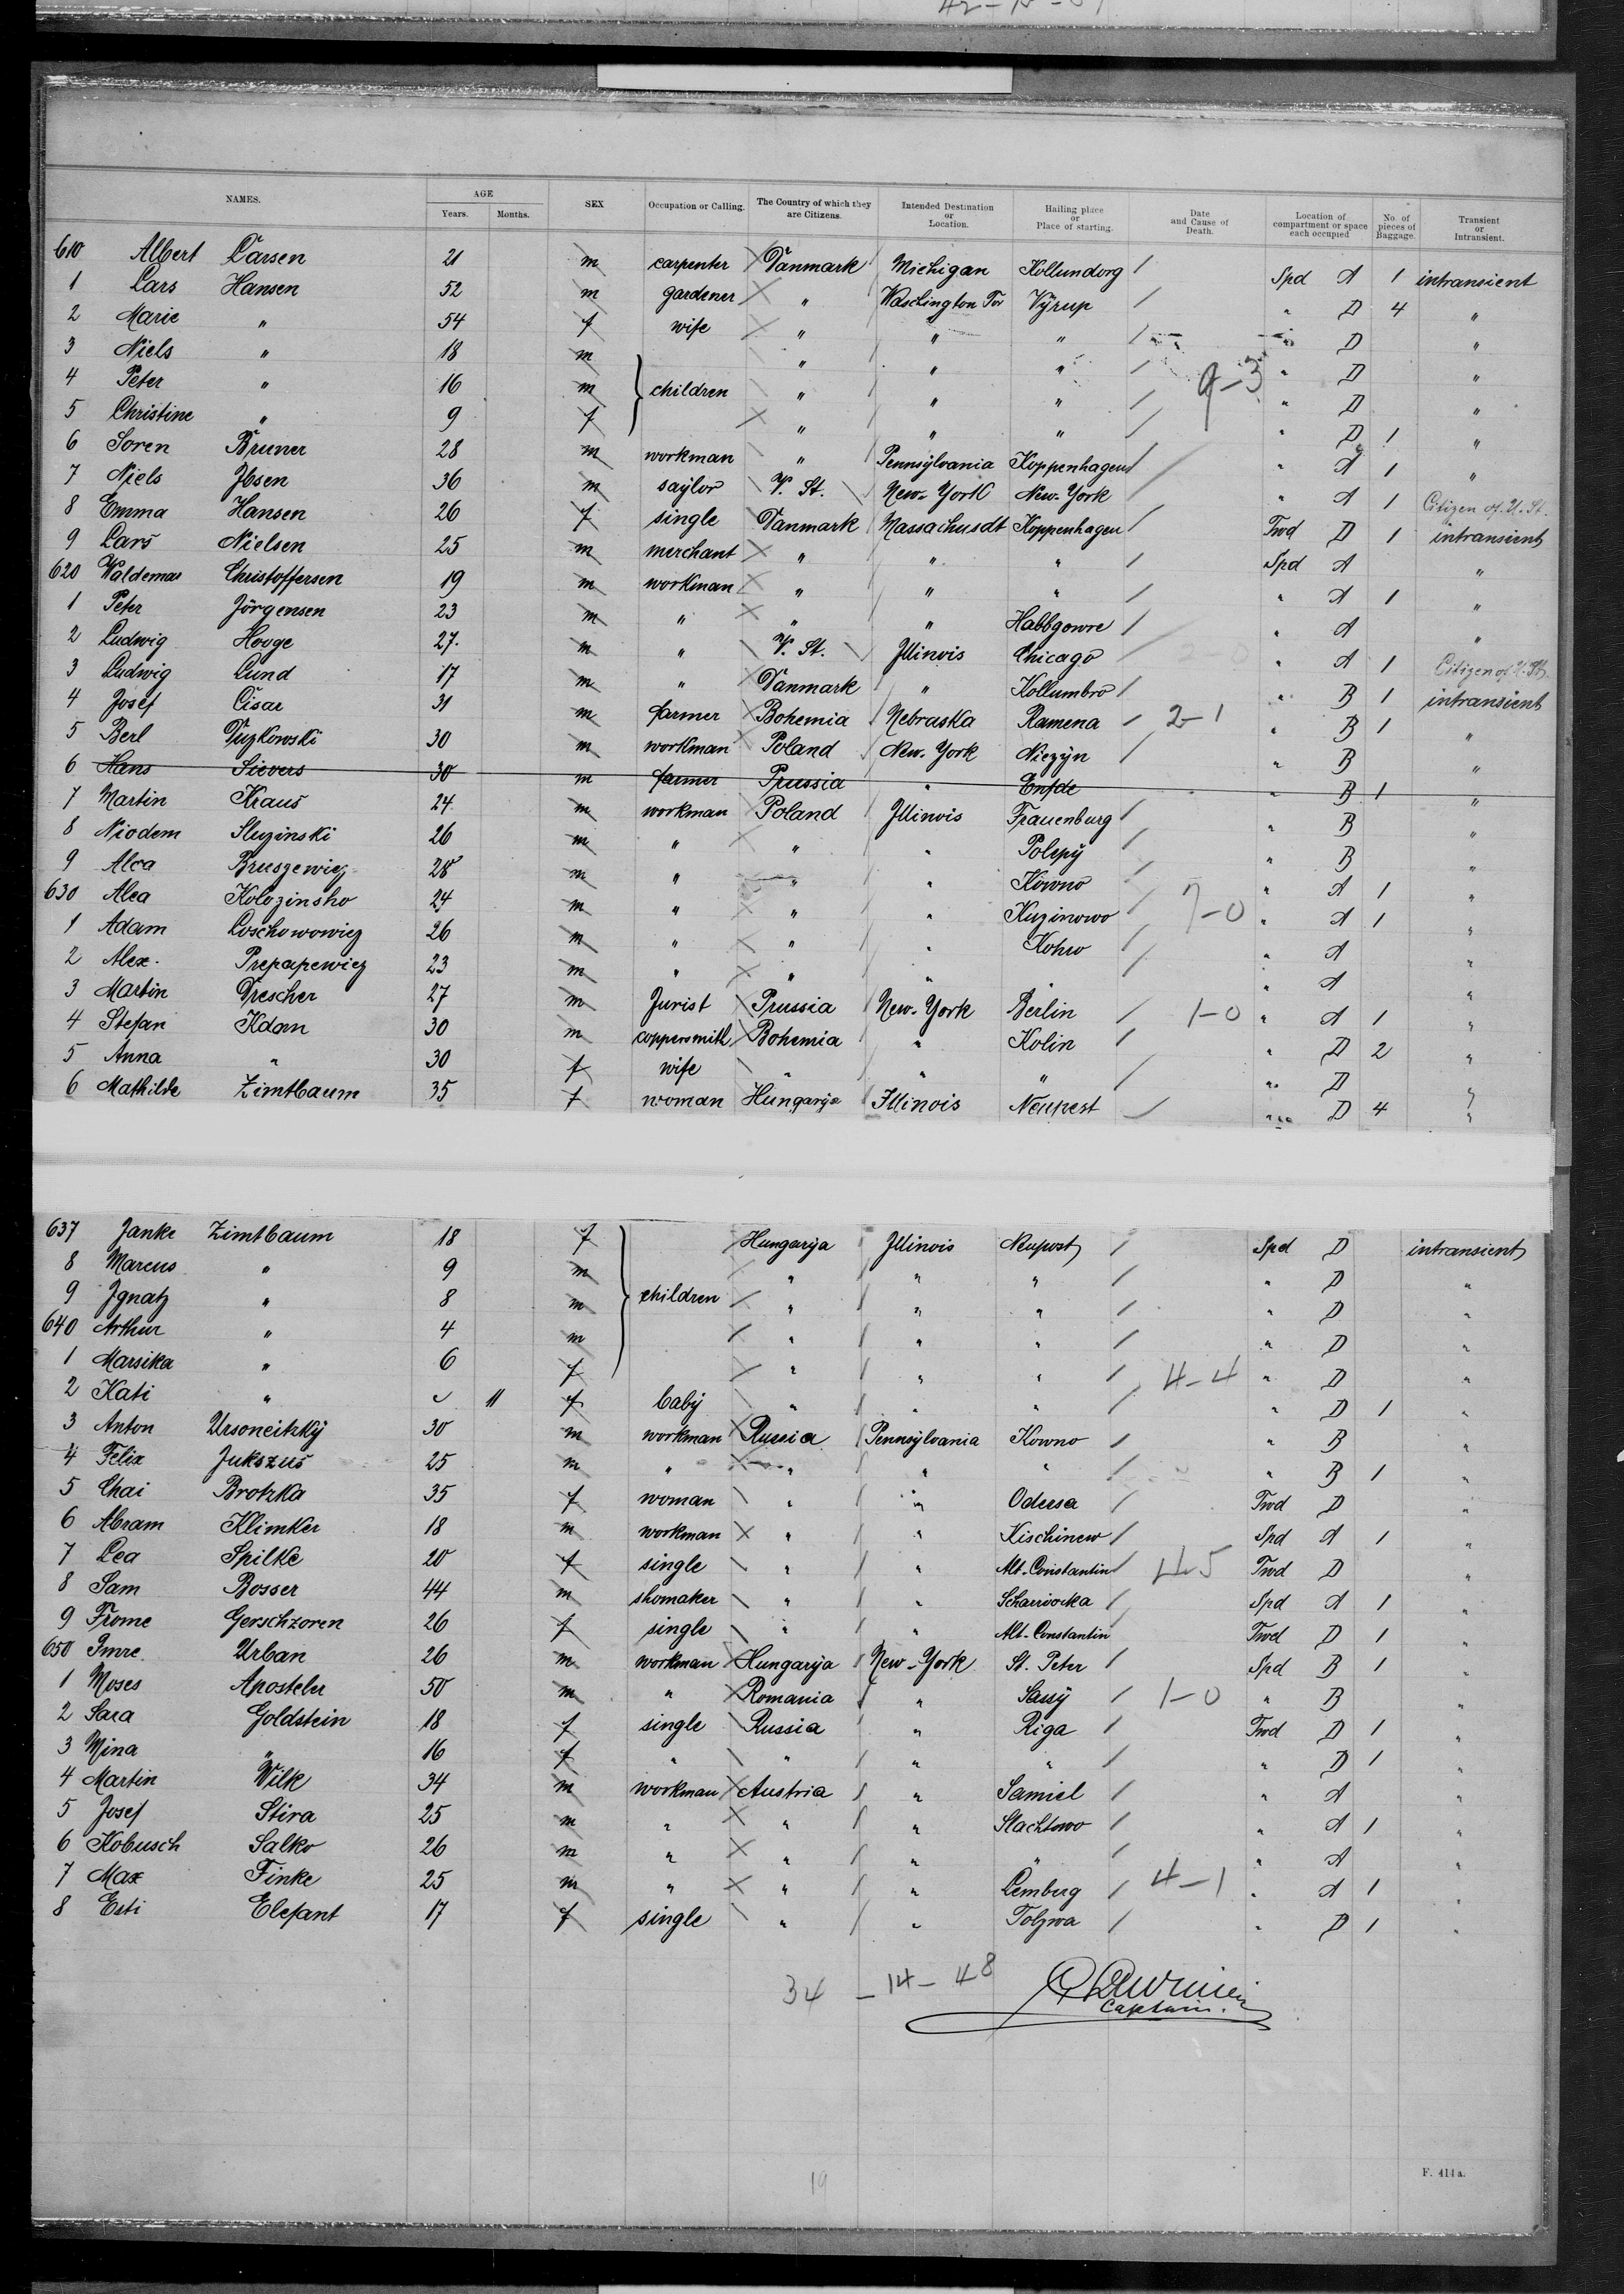 NAMES. AGE SEX Occupation or Calling. The Country of which they are Citizens. Intended Destination or Location. Hailing place or Place of starting. Date and Cause of Death. Location of compartment or space each occupied No. of pieces of Baggage. Transient or Intransient.
Years. Months.
610 Albert Larsen 21 m carpenter Danmark Michigan Kollundorg Spd A 1 intransient
1 Lars Hansen 52 m gardener " Waschington Ter Vyrup " D 4 "
2 Marie " 54 f wife " " " " D "
3 Niels " 18 m " " " " D "
4 Peter " 16 m children " " " 9-3 " D "
5 Christine " 9 f " " " " D 1 "
6 Soren Bruner 28 m workman " Pennsylvania Koppenhagen " A 1 "
7 Niels Jbsen 36 m saylor V. St. New-York New-York " A 1 Citizen of U. St.
8 Emma Hansen 26 f single Danmark Massachusdt Koppenhagen Twd D 1 intransient
9 Lars Nielsen 25 m merchant " " " Spd A "
620 Waldemar Christoffersen 19 m workman " " " " A 1 "
1 Peter Jörgensen 23 m " " " Habbgowre " A "
2 Ludwig Hooge 27. m " V. St. Jllinois Chicago " A 1 Citizen of U. St.
3 Ludwig Lund 17 m " Danmark " Kollumbro " B 1 intransient
4 Josef Cisar 31 m farmer Bohemia Nebraska Ramena 2-1 " B 1 "
5 Berl Duzkowski 30 m workman Poland New-York Niezyn " B "
6 Hans Sievers 30 m farmer Prussia " " B 1 "
7 Martin Kraus 24 m workman Poland Jllinois Frauenburg " B "
8 Niodem Sluzinski 26 m " " " Polepy " B "
9 Alca Bruszewicz 28 m " " " Kowno " A 1 "
630 Alca Kolozinsho 24 m " " " Kuzinowo 7-0 " A 1 "
1 Adam Loschowowicz 26 m " " " Kohw " A "
2 Alex. Prepapewicz 23 m " " " " " A "
3 Martin Drescher 27 m Jurist Prussia New-York Berlin 1-0 " A 1 "
4 Stefan Kdan 30 m coppersmith Bohemia " Kolin " D 2 "
5 Anna " 30 f wife " " " " D "
6 Mathilde Zimtbaum 35 f woman Hungarija Illinois Neupest " D 4 "
637 Janke Zimtbaum 18 f Hungarija Jllinois Neupest Spd D intransient
8 Marcus " 9 m " " " " D "
9 Jgnatz " 8 m children " " " " D "
640 Arthur " 4 m " " " " D "
1 Marsika " 6 f " " " 4-4 " D "
2 Kati " 11 f baby " " " " D 1 "
3 Anton Ursoneitzky 30 m workman Russia Pennsylvania Kowno " B "
4 Felix Jukszus 25 m " " " " " B 1 "
5 Chai Brotzka 35 f woman " " Odessa Twd D "
6 Abram Klimker 18 m workman " " Kischinew Spd A 1 "
7 Lea Spilke 20 f single " " Alt-Constantin 4-5 Twd D "
8 Sam Bosser 44 m shomaker " " Scharivocka Spd A 1 "
9 Frome Gerschzoren 26 f single " " Alt-Constantin Twd D 1 "
650 Jmre Urban 26 m workman Hungarija New-York St. Peter Spd B 1 "
1 Moses Aposteler 50 m " Romania " Sassy 1-0 " B "
2 Sara Goldstein 18 f single Russia " Riga Twd D 1 "
3 Mina " 16 f " " " " " D 1 "
4 Martin Wilk 34 m workman Austria " Samiel " A "
5 Josef Stira 25 m " " " Slachtowo " A 1 "
6 Kobusch Salko 26 m " " " " " A "
7 Max Finke 25 m " " " Lemberg 4-1 " A 1 "
8 Esti Elefant 17 f single " " Tolzwa " D 1 "
34 - 14 - 48
Captain.
19
F. 411a.